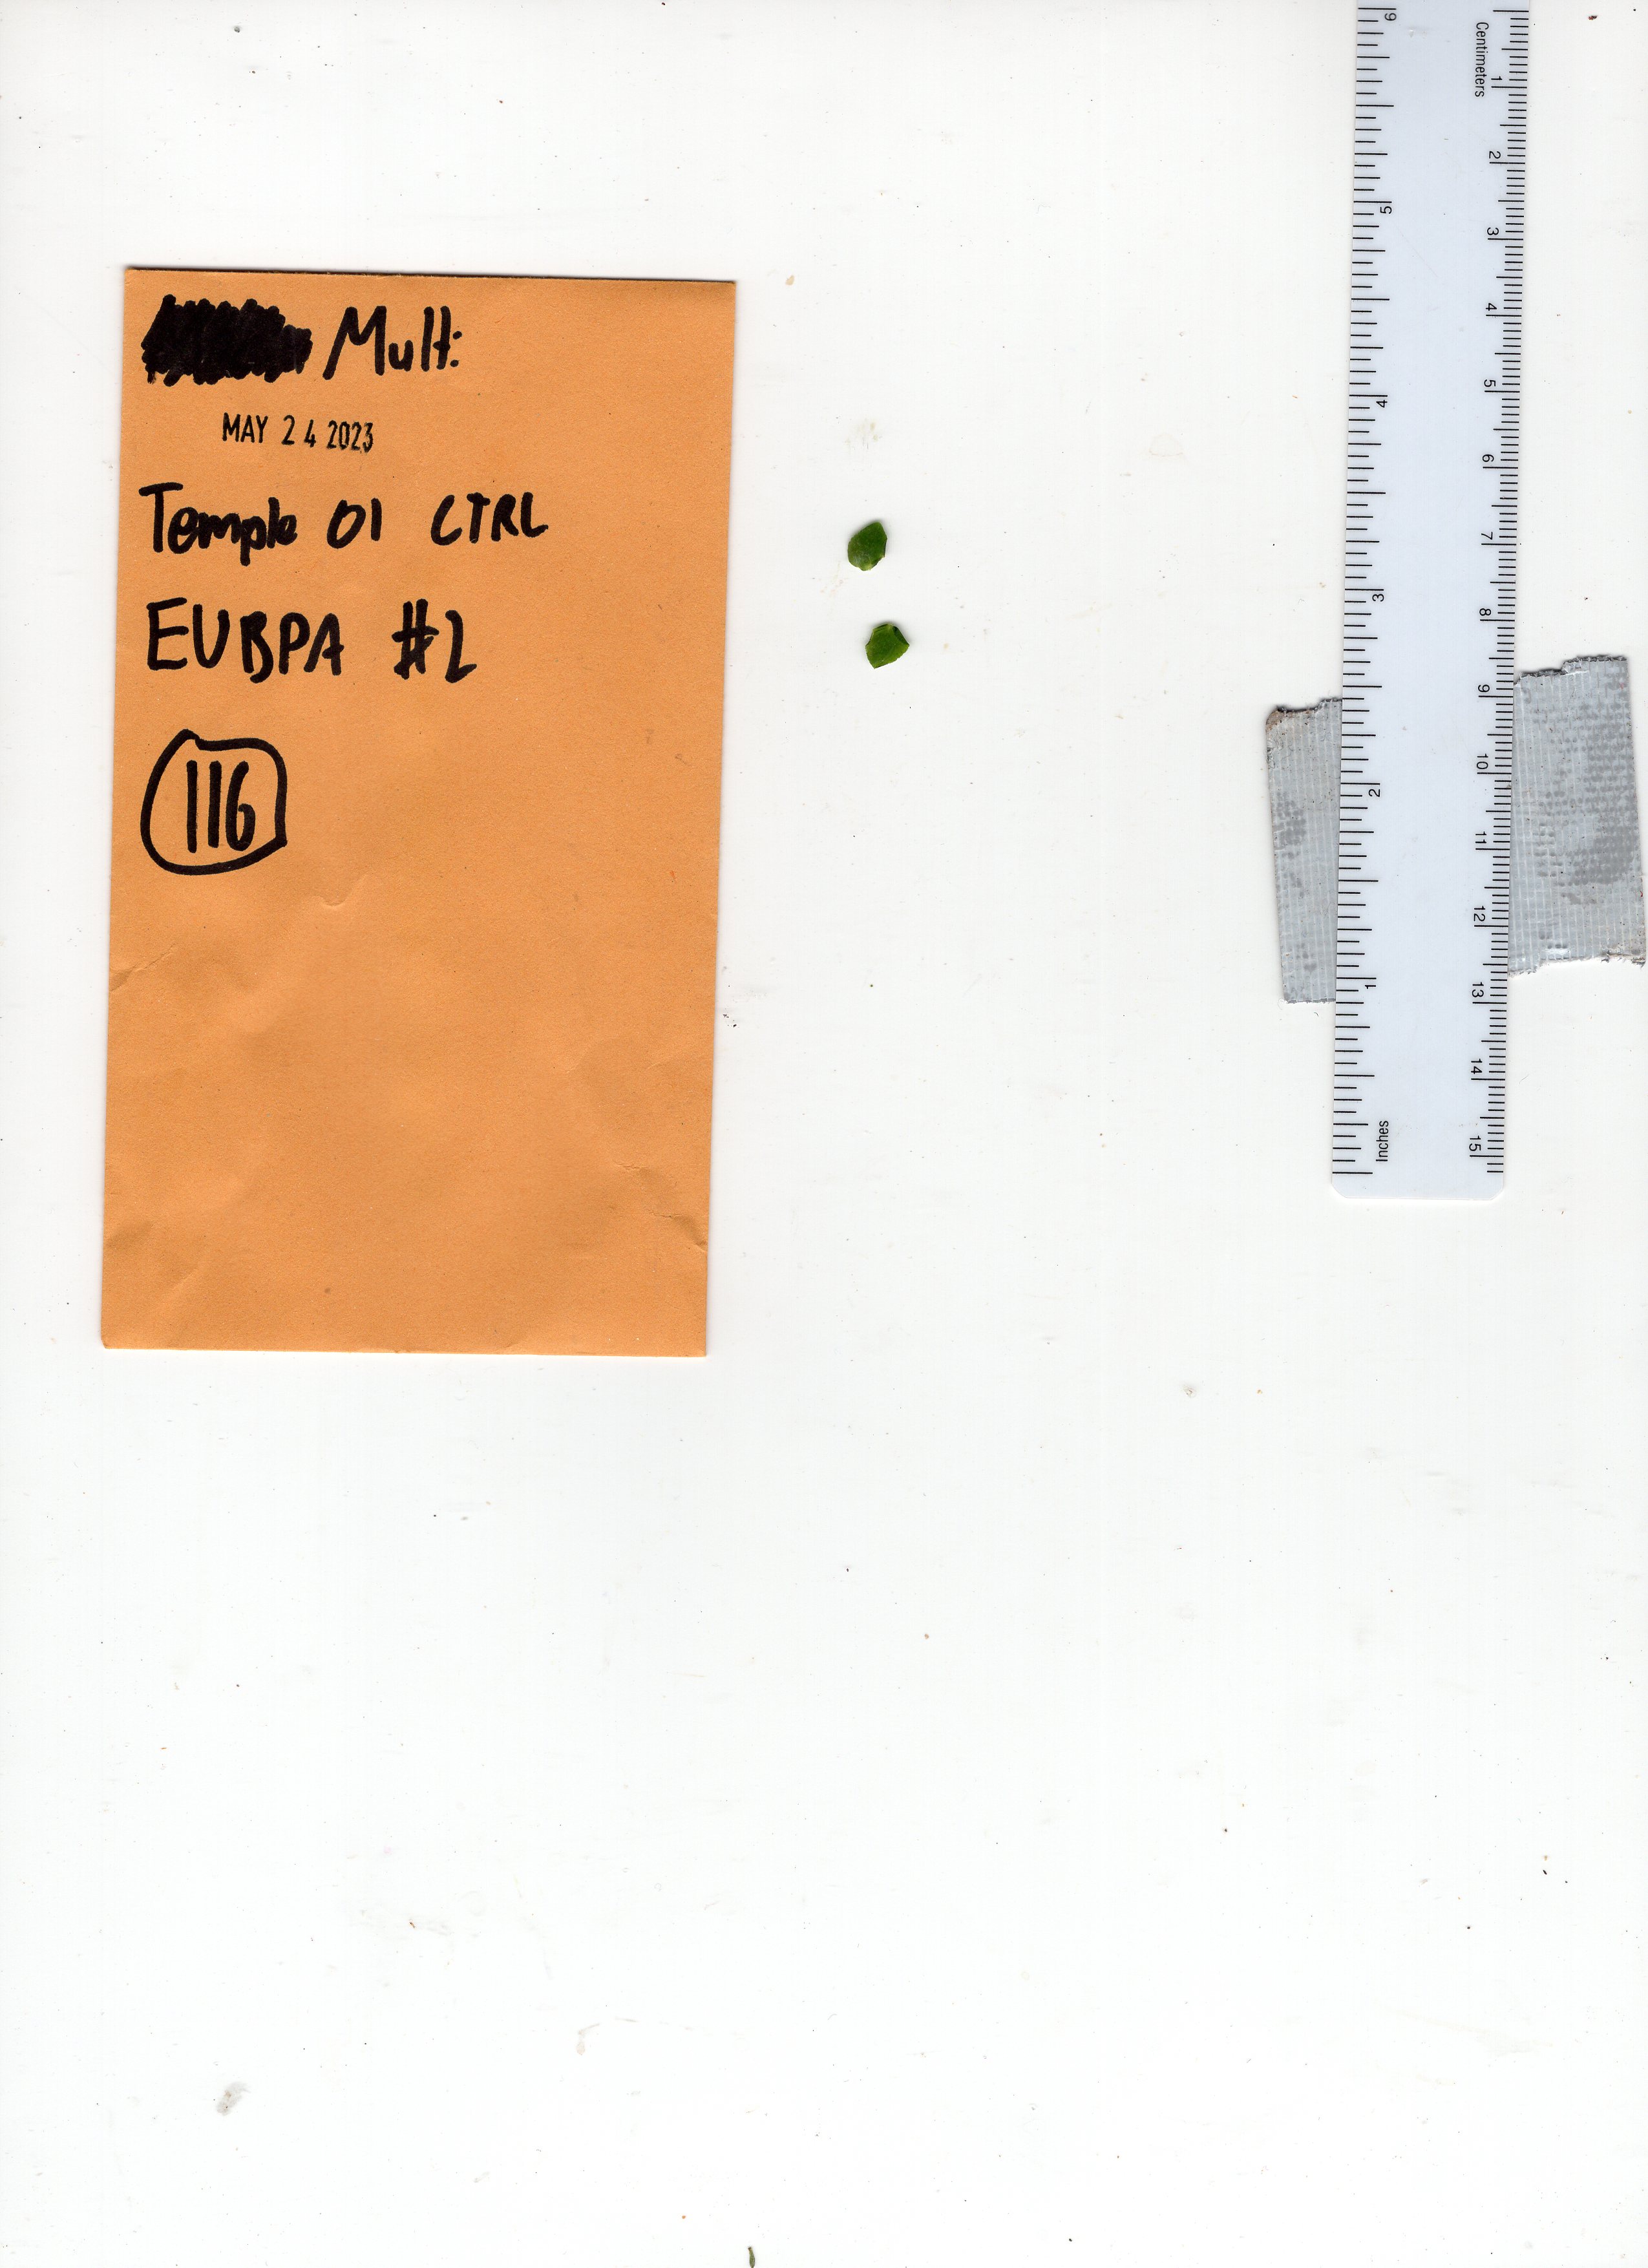 Multi
MAY 24 2023
Temple 01 CTRL
EUBPA #2
116
Centimeters
1
2
3
4
5
6
7
8
9
10
11
12
13
14
15
6
5
4
3
2
1
Inches